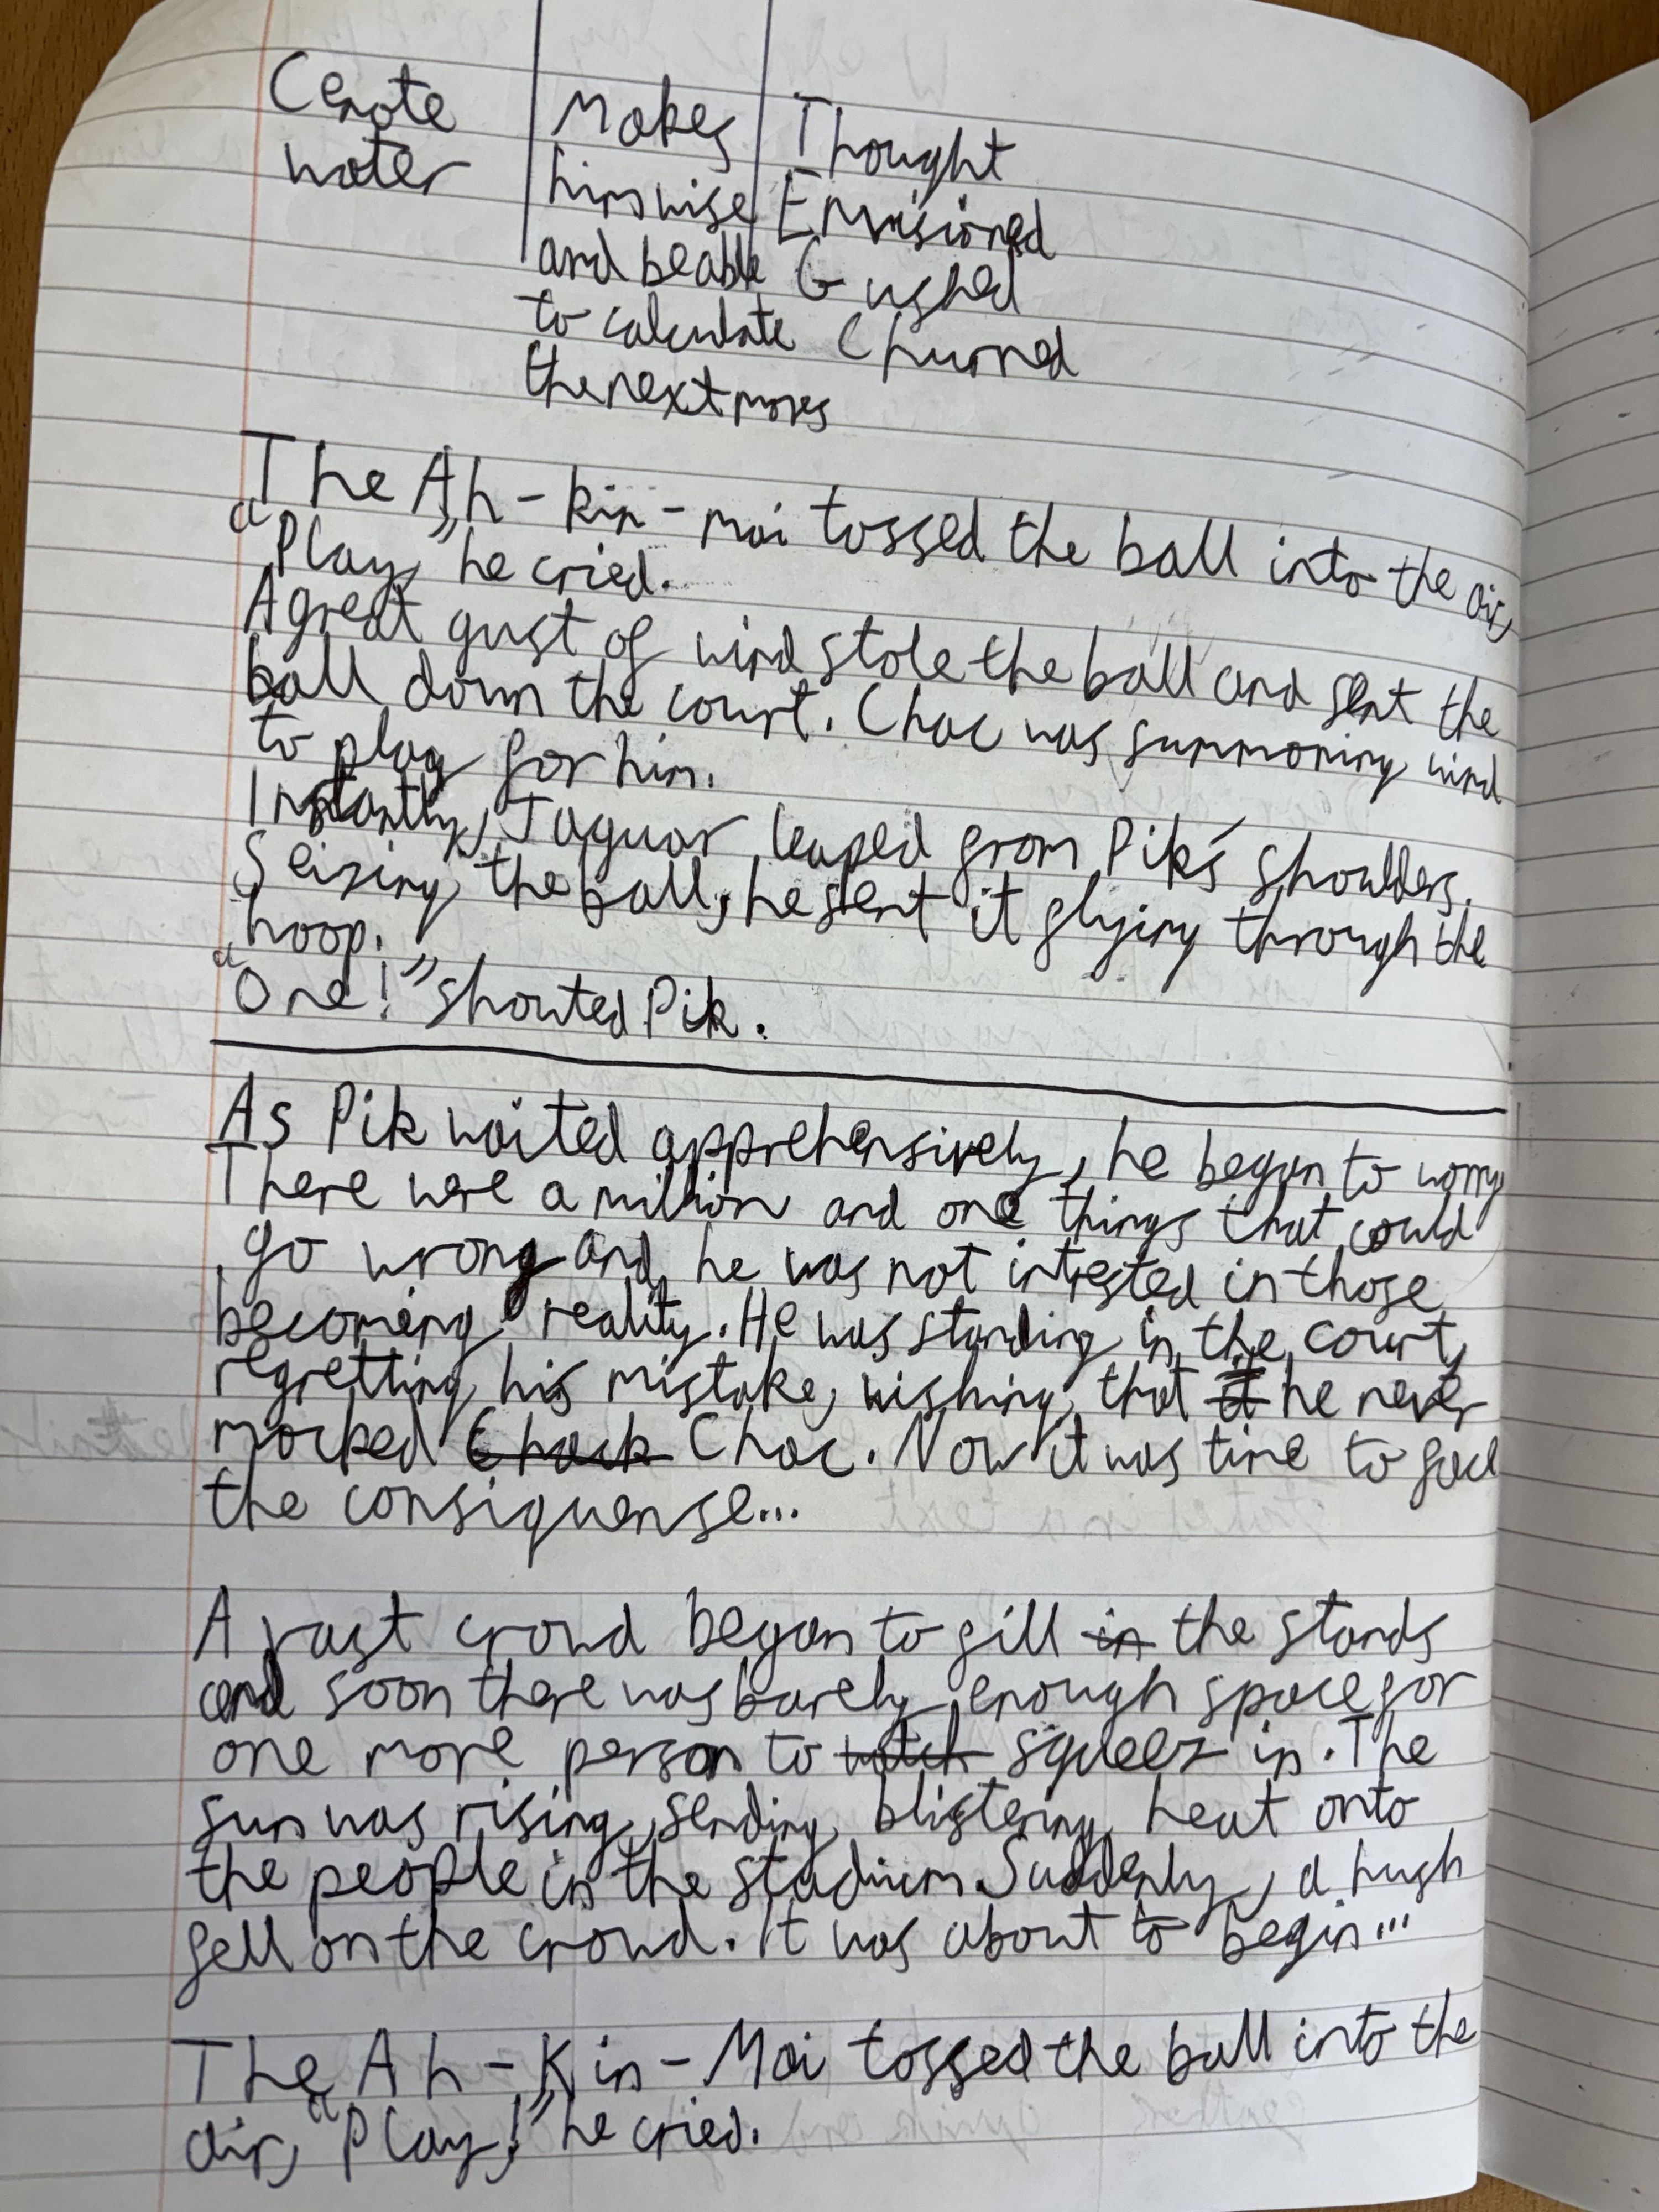 Cenote | Makes | Thought
water | him wise | Envisioned
and be able Gushed
to calculate Churned
the next moves
The Ah-kin-mai tossed the ball into the air,
"Play," he cried.
A great gust of wind stole the ball and sent the
ball down the court. Chac was summoning wind
to play for him.
Instantly, Jaguar leaped from Pik's shoulders.
Seizing the ball, he sent it flying through the
hoop.
"One!" shouted Pik.
As Pik waited apprehensively, he began to worry
There were a million and one things that could
go wrong and he was not intrested in those
becoming reality. He was standing in the court,
regretting his mistake, wishing that it he never
mocked Chack Chac. Now it was time to face
the consiquense...
A vast crowd began to fill in the stands
and soon there was barely enough space for
one more person to watch squeez in. The
sun was rising, sending blistering heat onto
the people in the stadium. Suddenly, a hush
fell on the crowd. It was about to begin...
The Ah-Kin-Mai tossed the ball into the
air, "Play!" he cried.